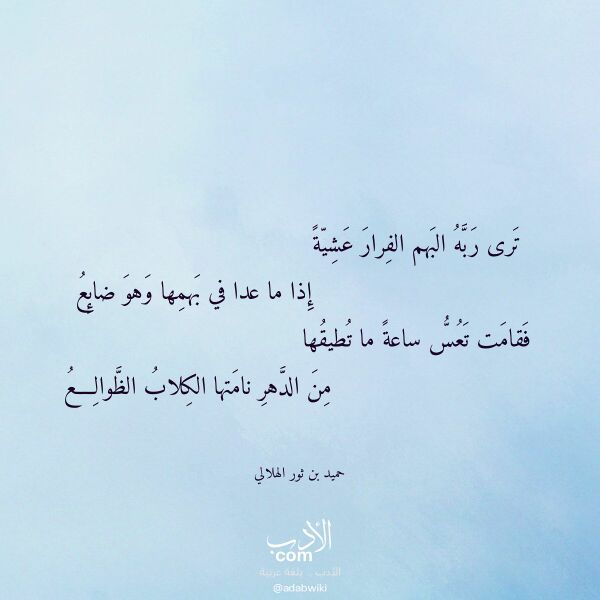 تَرى رَبَّهُ البَهم الفِرارَ عَشِيّةً
إِذا ما عدا في بَهمِها وَهوَ ضائِعُ
فَقامَت تَعُسُّ ساعةً ما تُطيقُها
مِنَ الدَّهرِ نامَتها الكِلابُ الظَّوالِـــعُ
حميد بن ثور الهلالي
الأدب
com
الأدب .. بلغة عربية
@adabwiki